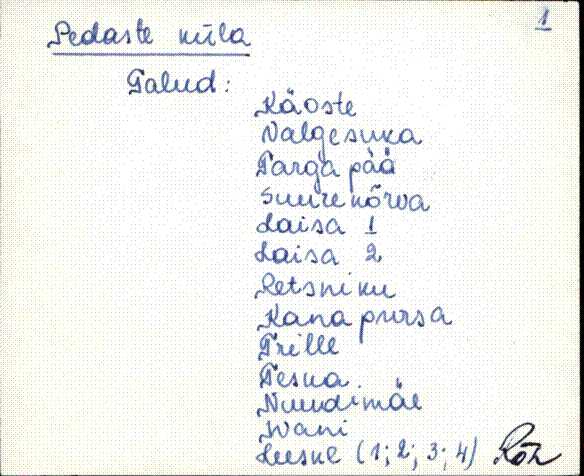 1
Pedaste küla
Talud:
Käoste
Valgesuka
Targa pää
Suurekõrva
Laisa 1
Laisa 2
Retsniku
Kana pursa
Trille
Teska
Nuudimäe
Ivani
(1; 2; 3; 4) Rõh